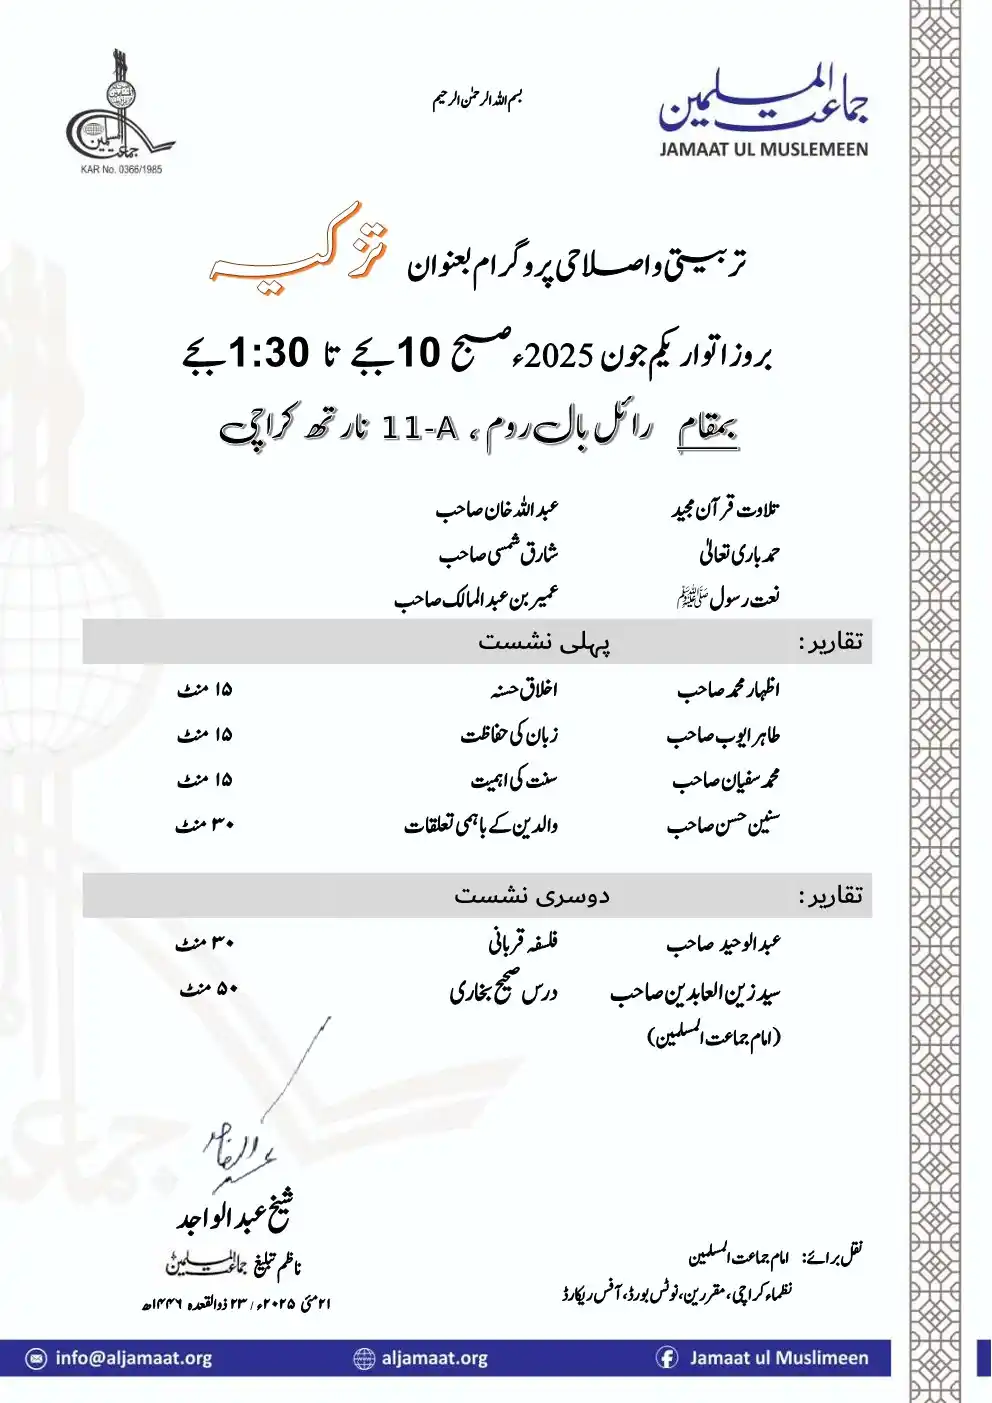 بسم اللہ الرحمٰن الرحیم
جماعت المسلمین
JAMAAT UL MUSLEMEEN
جماعت المسلمین
KAR No. 0366/1985
تربیتی و اصلاحی پروگرام بعنوان تزکیہ
بروز اتوار یکم جون 2025ء صبح 10 بجے تا 1:30 بجے
بمقام رائل بال روم، 11-A نارتھ کراچی
تلاوت قرآن مجید عبداللہ خان صاحب
حمد باری تعالیٰ شارق شمسی صاحب
نعت رسول ﷺ عمیر بن عبدالمالک صاحب
تقاریر: پہلی نشست
اظہار محمد صاحب اخلاق حسنہ ۱۵ منٹ
طاہر ایوب صاحب زبان کی حفاظت ۱۵ منٹ
محمد سفیان صاحب سنت کی اہمیت ۱۵ منٹ
سنین حسن صاحب والدین کے باہمی تعلقات ۳۰ منٹ
تقاریر: دوسری نشست
عبدالوحید صاحب فلسفہ قربانی ۳۰ منٹ
سید زین العابدین صاحب درس صحیح بخاری ۵۰ منٹ
(امام جماعت المسلمین)
شیخ عبدالواجد
ناظم تبلیغ جماعت المسلمین
۲۱ مئی ۲۰۲۵ء / ۲۳ ذوالقعدہ ۱۴۴۶ھ
نقل برائے: امام جماعت المسلمین
نظماء کراچی، مقررین، نوٹس بورڈ، آفس ریکارڈ
info@aljamaat.org
aljamaat.org
Jamaat ul Muslimeen